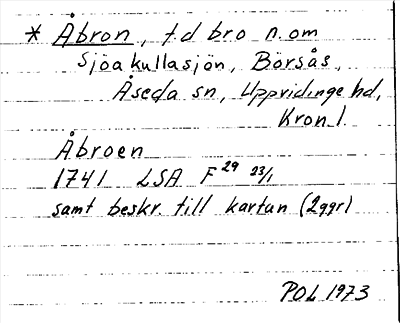 * Åbron, t d bro n. om
Sjöakullasjön, Börsås,
Åseda sn, Uppvidinge hd,
Kron. l
Åbroen
1741 LSA F 29 23/1
samt beskr. till kartan (2ggr)
POL 1973